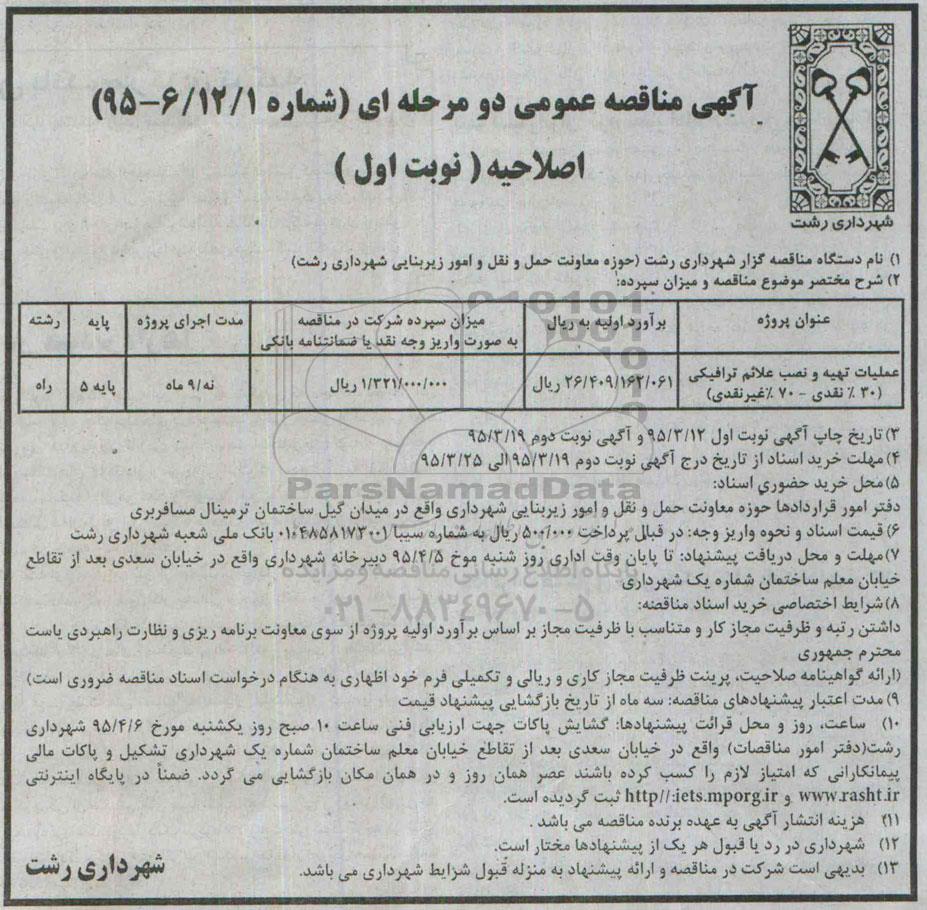 آگهی مناقصه عمومی دو مرحله ای (شماره ۶/۱۲/۱-۹۵)
اصلاحیه (نوبت اول)
شهرداری رشت
۱) نام دستگاه مناقصه گزار شهرداری رشت (حوزه معاونت حمل و نقل و امور زیربنایی شهرداری رشت)
۲) شرح مختصر موضوع مناقصه و میزان سپرده:
عنوان پروژه
برآورد اولیه به ریال
میزان سپرده شرکت در مناقصه
به صورت واریز وجه نقد یا ضمانتنامه بانکی
مدت اجرای پروژه
پایه
رشته
عملیات تهیه و نصب علائم ترافیکی
(۳۰ ٪ نقدی - ۷۰ ٪غیرنقدی)
۲۶/۴۰۹/۱۶۲/۰۶۱ ریال
۱/۳۲۱/۰۰۰/۰۰۰ ریال
نه/۹ ماه
پایه ۵
راه
۳) تاریخ چاپ آگهی نوبت اول ۹۵/۳/۱۲ و آگهی نوبت دوم ۹۵/۳/۱۹
۴) مهلت خرید اسناد از تاریخ درج آگهی نوبت دوم ۹۵/۳/۱۹ الی ۹۵/۳/۲۵
۵) محل خرید حضوری اسناد:
دفتر امور قراردادها حوزه معاونت حمل و نقل و امور زیربنایی شهرداری واقع در میدان گیل ساختمان ترمینال مسافربری
۶) قیمت اسناد و نحوه واریز وجه: در قبال پرداخت ۵۰۰/۰۰۰ ریال به شماره سیبا ۰۱۰۴۸۵۸۱۷۳۰۰۱ بانک ملی شعبه شهرداری رشت
۷) مهلت و محل دریافت پیشنهاد: تا پایان وقت اداری روز شنبه موخ ۹۵/۴/۵ دبیرخانه شهرداری واقع در خیابان سعدی بعد از تقاطع
خیابان معلم ساختمان شماره یک شهرداری
۸) شرایط اختصاصی خرید اسناد مناقصه:
داشتن رتبه و ظرفیت مجاز کار و متناسب با ظرفیت مجاز بر اساس برآورد اولیه پروژه از سوی معاونت برنامه ریزی و نظارت راهبردی یاست
محترم جمهوری
(ارائه گواهینامه صلاحیت، پرینت ظرفیت مجاز کاری و ریالی و تکمیلی فرم خود اظهاری به هنگام درخواست اسناد مناقصه ضروری است)
۹) مدت اعتبار پیشنهادهای مناقصه: سه ماه از تاریخ بازگشایی پیشنهاد قیمت
۱۰) ساعت، روز و محل قرائت پیشنهادها: گشایش پاکات جهت ارزیابی فنی ساعت ۱۰ صبح روز یکشنبه مورخ ۹۵/۴/۶ شهرداری
رشت(دفتر امور مناقصات) واقع در خیابان سعدی بعد از تقاطع خیابان معلم ساختمان شماره یک شهرداری تشکیل و پاکات مالی
پیمانکارانی که امتیاز لازم را کسب کرده باشند عصر همان روز و در همان مکان بازگشایی می گردد. ضمناً در پایگاه اینترنتی
www.rasht.ir و http//:iets.mporg.ir ثبت گردیده است.
۱۱) هزینه انتشار آگهی به عهده برنده مناقصه می باشد.
۱۲) شهرداری در رد یا قبول هر یک از پیشنهادها مختار است.
۱۳) بدیهی است شرکت در مناقصه و ارائه پیشنهاد به منزله قبول شرایط شهرداری می باشد.
شهرداری رشت
ParsNamadData
پایگاه اطلاع رسانی مناقصه و مزایده
۰۲۱-۸۸۳۴۹۶۷۰-۵